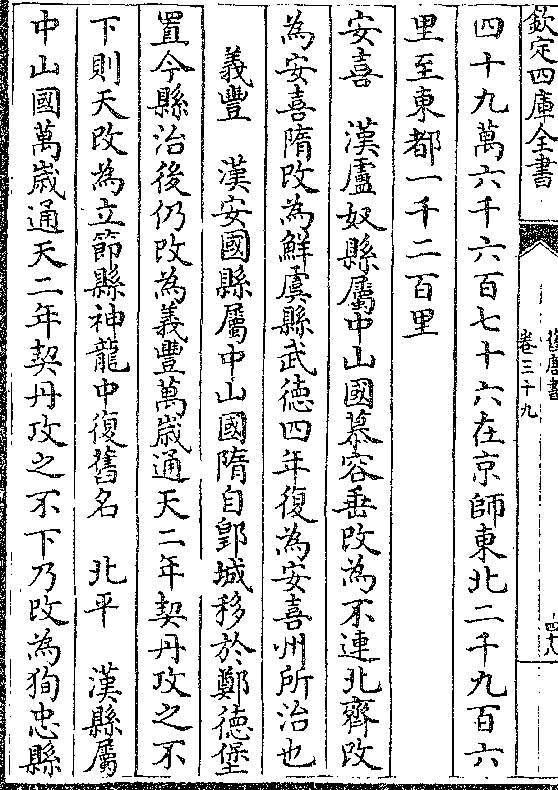 欽定四庫全書
舊唐書
卷三十九
四十八
四十九萬六千六百七十六在京師東北二千九百六
里至東都一千二百里
安喜　漢盧奴縣屬中山國慕容垂改為不連北齊改
為安喜隋改為鮮虞縣武德四年復為安喜州所治也
義豐　漢安國縣屬中山國隋自鄆城移於鄭德堡
置今縣治後仍改為義豐萬歲通天二年契丹攻之不
下則天改為立節縣神龍中復舊名　北平　漢縣屬
中山國萬歲通天二年契丹攻之不下乃改為狥忠縣